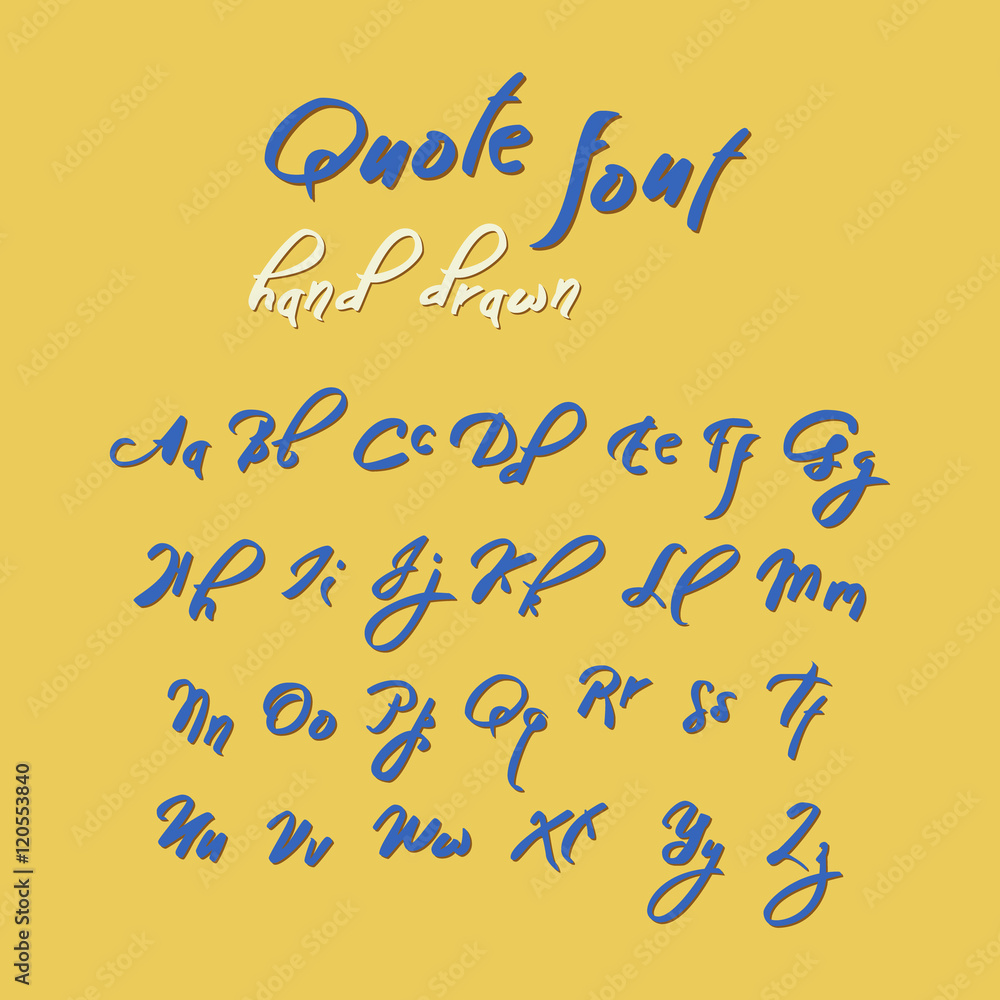 Quote font
hand drawn
Aa Bb Cc Dd Ee Ff Gg
Hh Ii Jj Kk Ll Mm
Nn Oo Pp Qq Rr Ss Tt
Uu Vv Ww Xx Yy Zz
Adobe Stock | #120553840